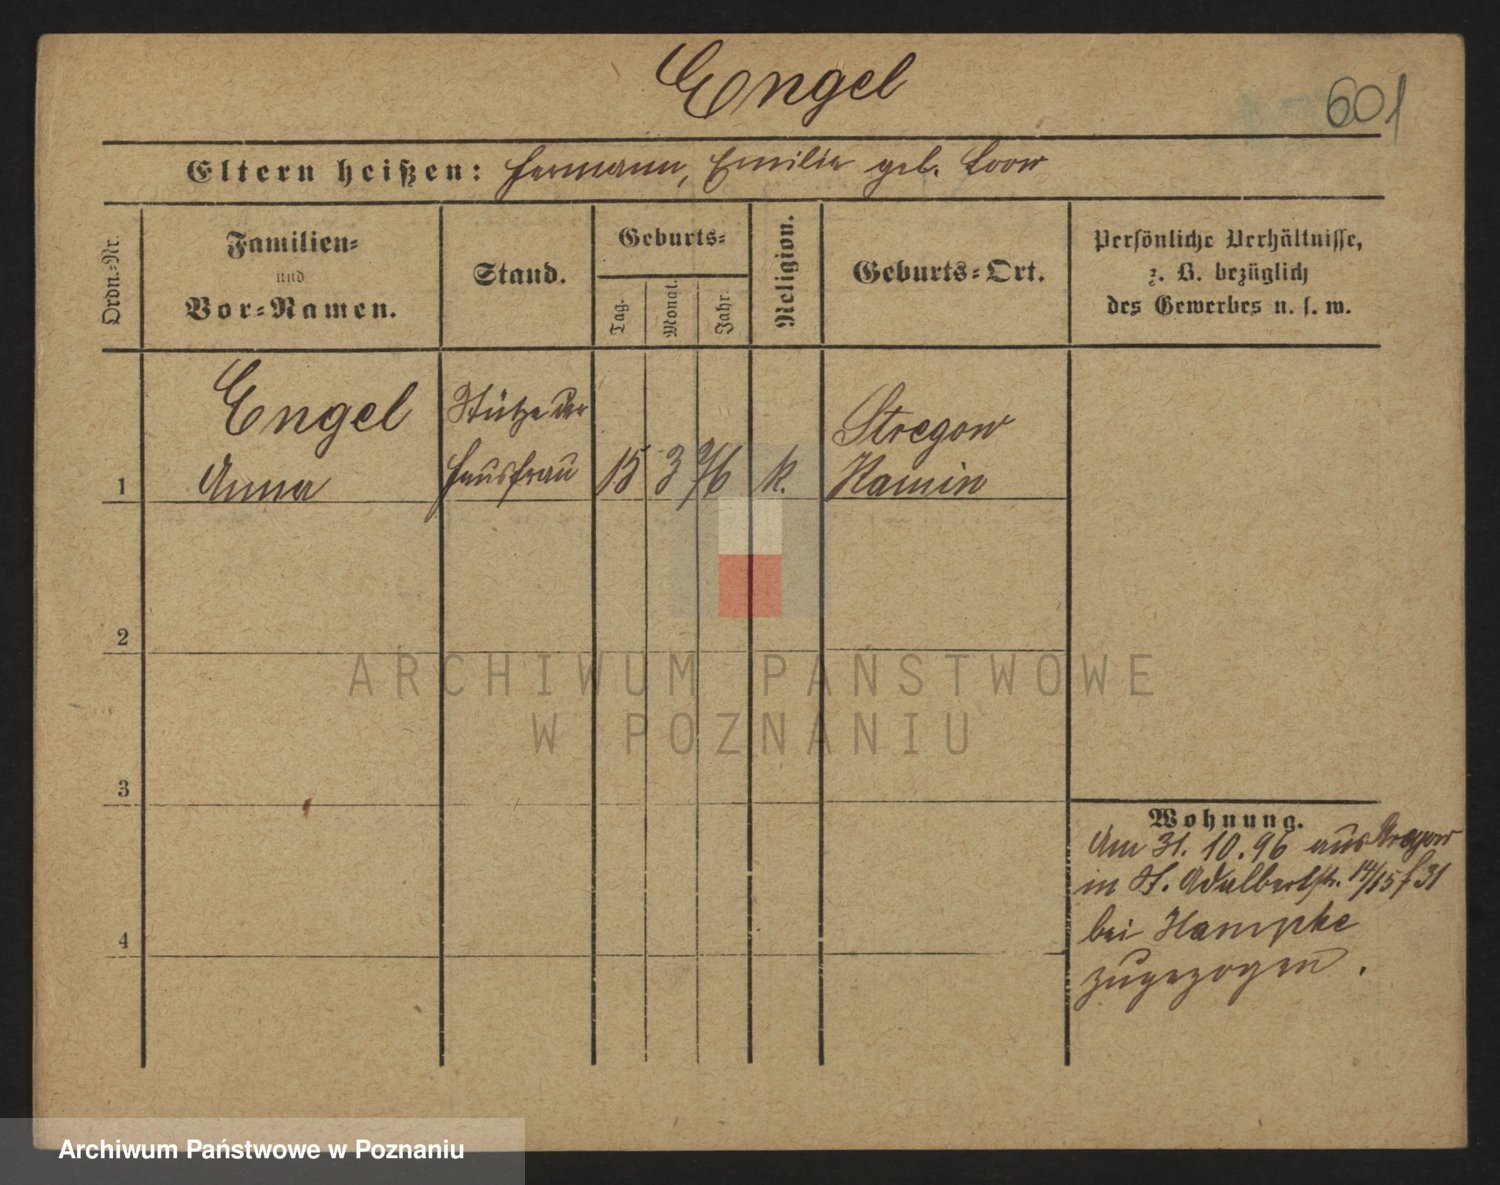 Engel
601
Eltern heißen: Hermann, Emilie geb. Loow
Ordn.-Nr.
Familien-
und
Vor-Namen.
Stand.
Geburts-
Tag.
Monat.
Jahr.
Religion.
Geburts-Ort.
Persönliche Verhältnisse,
z. B. bezüglich
des Gewerbes u. s. w.
Engel
Anna
Stütze der
Hausfrau
15 3 76 k.
Stregow
Kamin
1
2
3
4
ARCHIWUM PAŃSTWOWE
W POZNANIU
Wohnung.
Am 31.10.96 aus Stregow
in St. Adalbertstr. 14/15 f 31
bei Hampke
zugezogen.
Archiwum Państwowe w Poznaniu